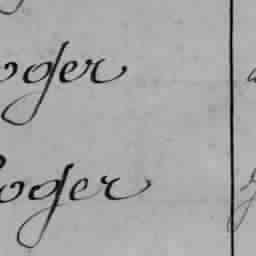 oger
oger